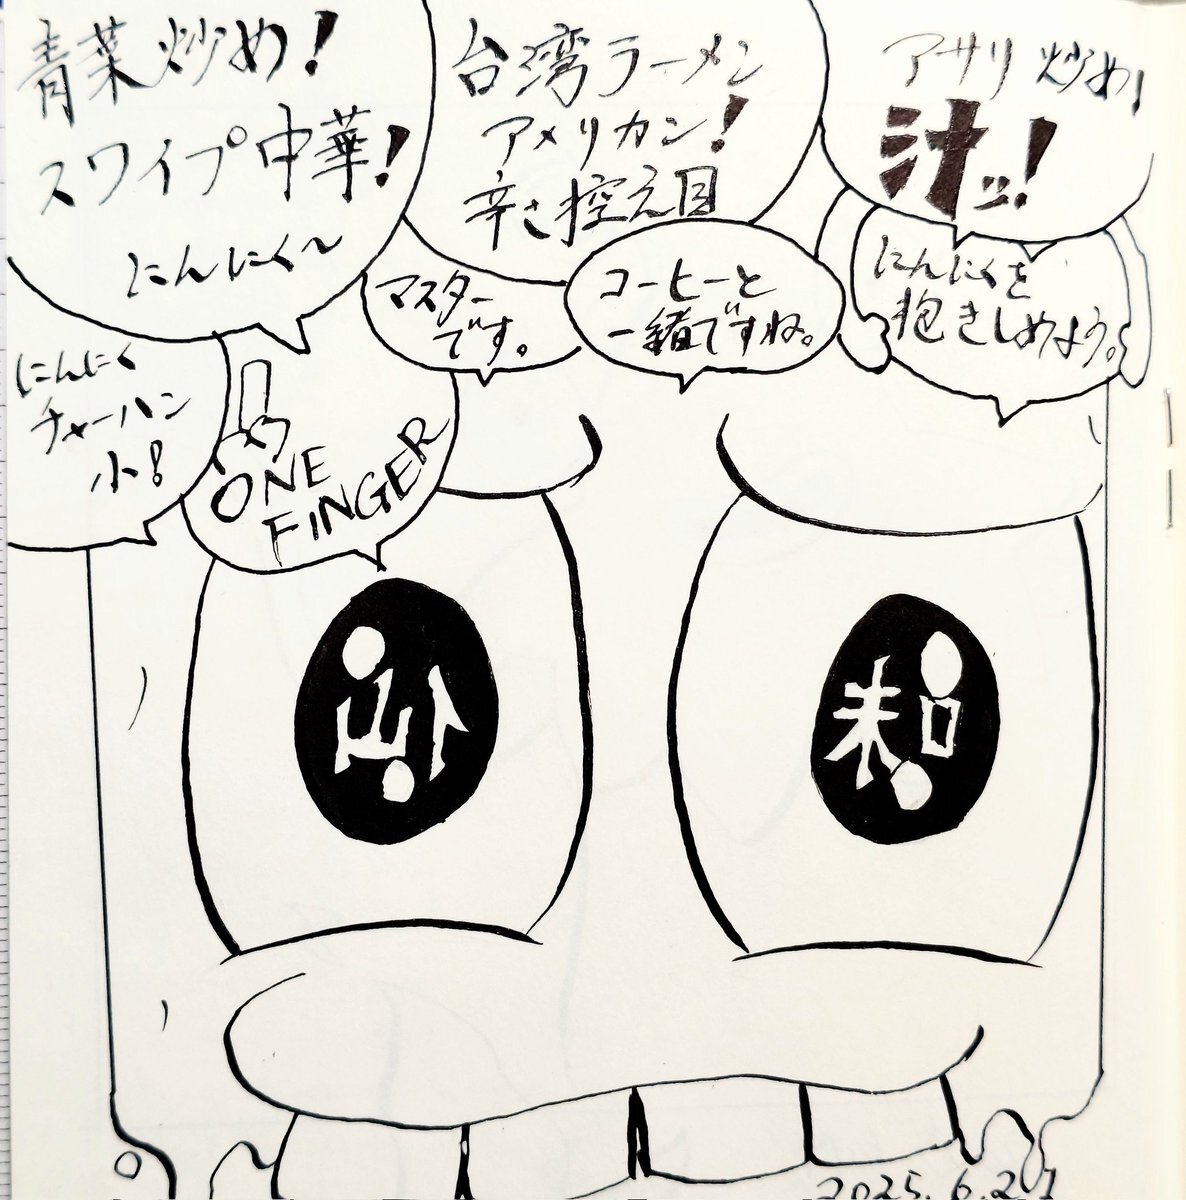 青菜炒め!
スワイプ中華!
にんにく〜
台湾ラーメン
アメリカン!
辛さ控え目
アサリ炒め!
汁ッ!
マスター
です。
コーヒーと
一緒ですね。
にんにくを
抱きしめよう。
にんにく
チャーハン
小!
ONE
FINGER
山
味
2025.6.27